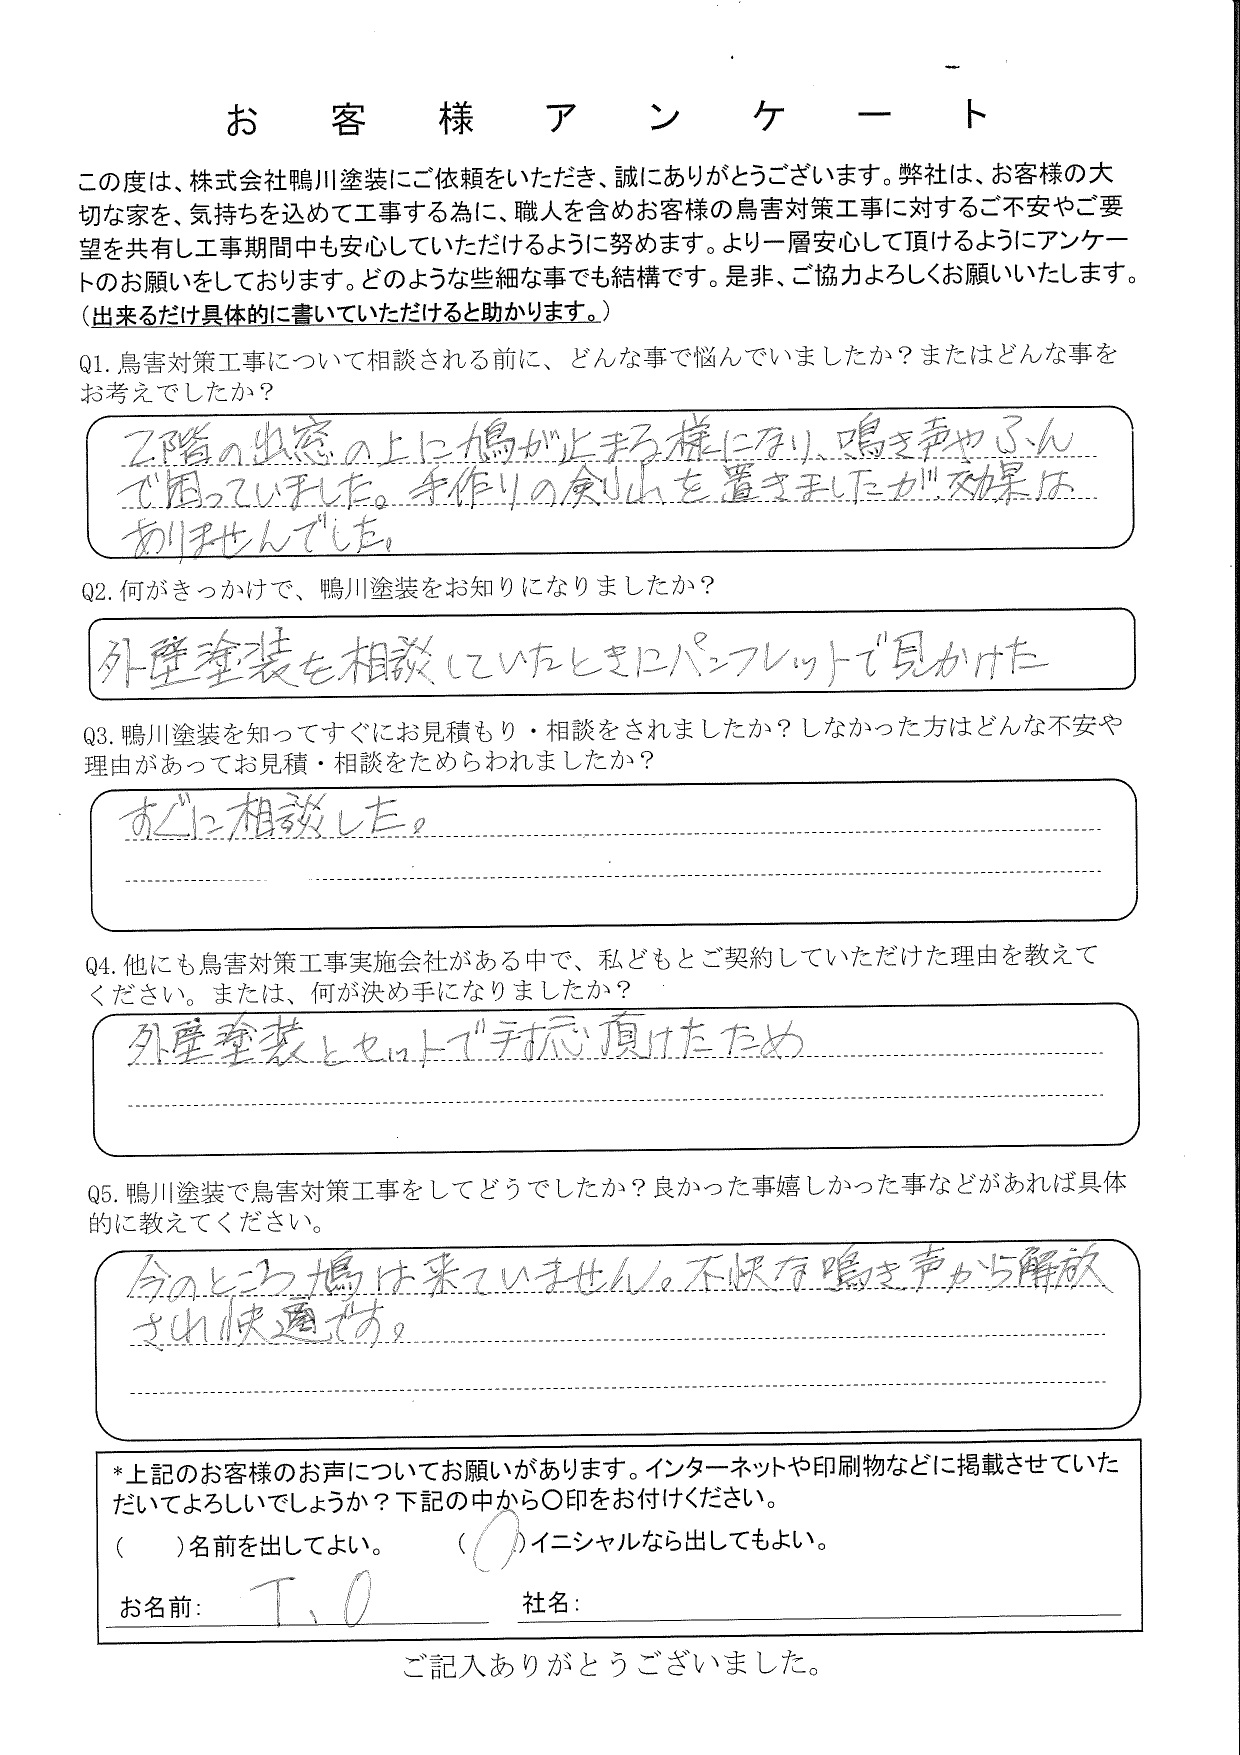 お客様アンケート
この度は、株式会社鴨川塗装にご依頼をいただき、誠にありがとうございます。弊社は、お客様の大
切な家を、気持ちを込めて工事する為に、職人を含めお客様の鳥害対策工事に対するご不安やご要
望を共有し工事期間中も安心していただけるように努めます。より一層安心して頂けるようにアンケー
トのお願いをしております。どのような些細な事でも結構です。是非、ご協力よろしくお願いいたします。
（出来るだけ具体的に書いていただけると助かります。）
Q1.鳥害対策工事について相談される前に、どんな事で悩んでいましたか？またはどんな事を
お考えでしたか？
2階の出窓の上に鳩が止まる様になり、鳴き声やふん
で困っていました。手作りの剣山を置きましたが効果は
ありませんでした。
Q2.何がきっかけで、鴨川塗装をお知りになりましたか？
外壁塗装を相談していたときにパンフレットで見かけた
Q3.鴨川塗装を知ってすぐにお見積もり・相談をされましたか？しなかった方はどんな不安や
理由があってお見積・相談をためらわれましたか？
すぐに相談した。
Q4.他にも鳥害対策工事実施会社がある中で、私どもとご契約していただけた理由を教えて
ください。または、何が決め手になりましたか？
外壁塗装とセットで対応頂けたため
Q5.鴨川塗装で鳥害対策工事をしてどうでしたか？良かった事嬉しかった事などがあれば具体
的に教えてください。
今のところ鳩は来ていません。不快な鳴き声から解放
され快適です。
*上記のお客様のお声についてお願いがあります。インターネットや印刷物などに掲載させていた
だいてよろしいでしょうか？下記の中から〇印をお付けください。
（　　）名前を出してよい。　（〇）イニシャルなら出してもよい。
お名前: T、O　社名:
ご記入ありがとうございました。